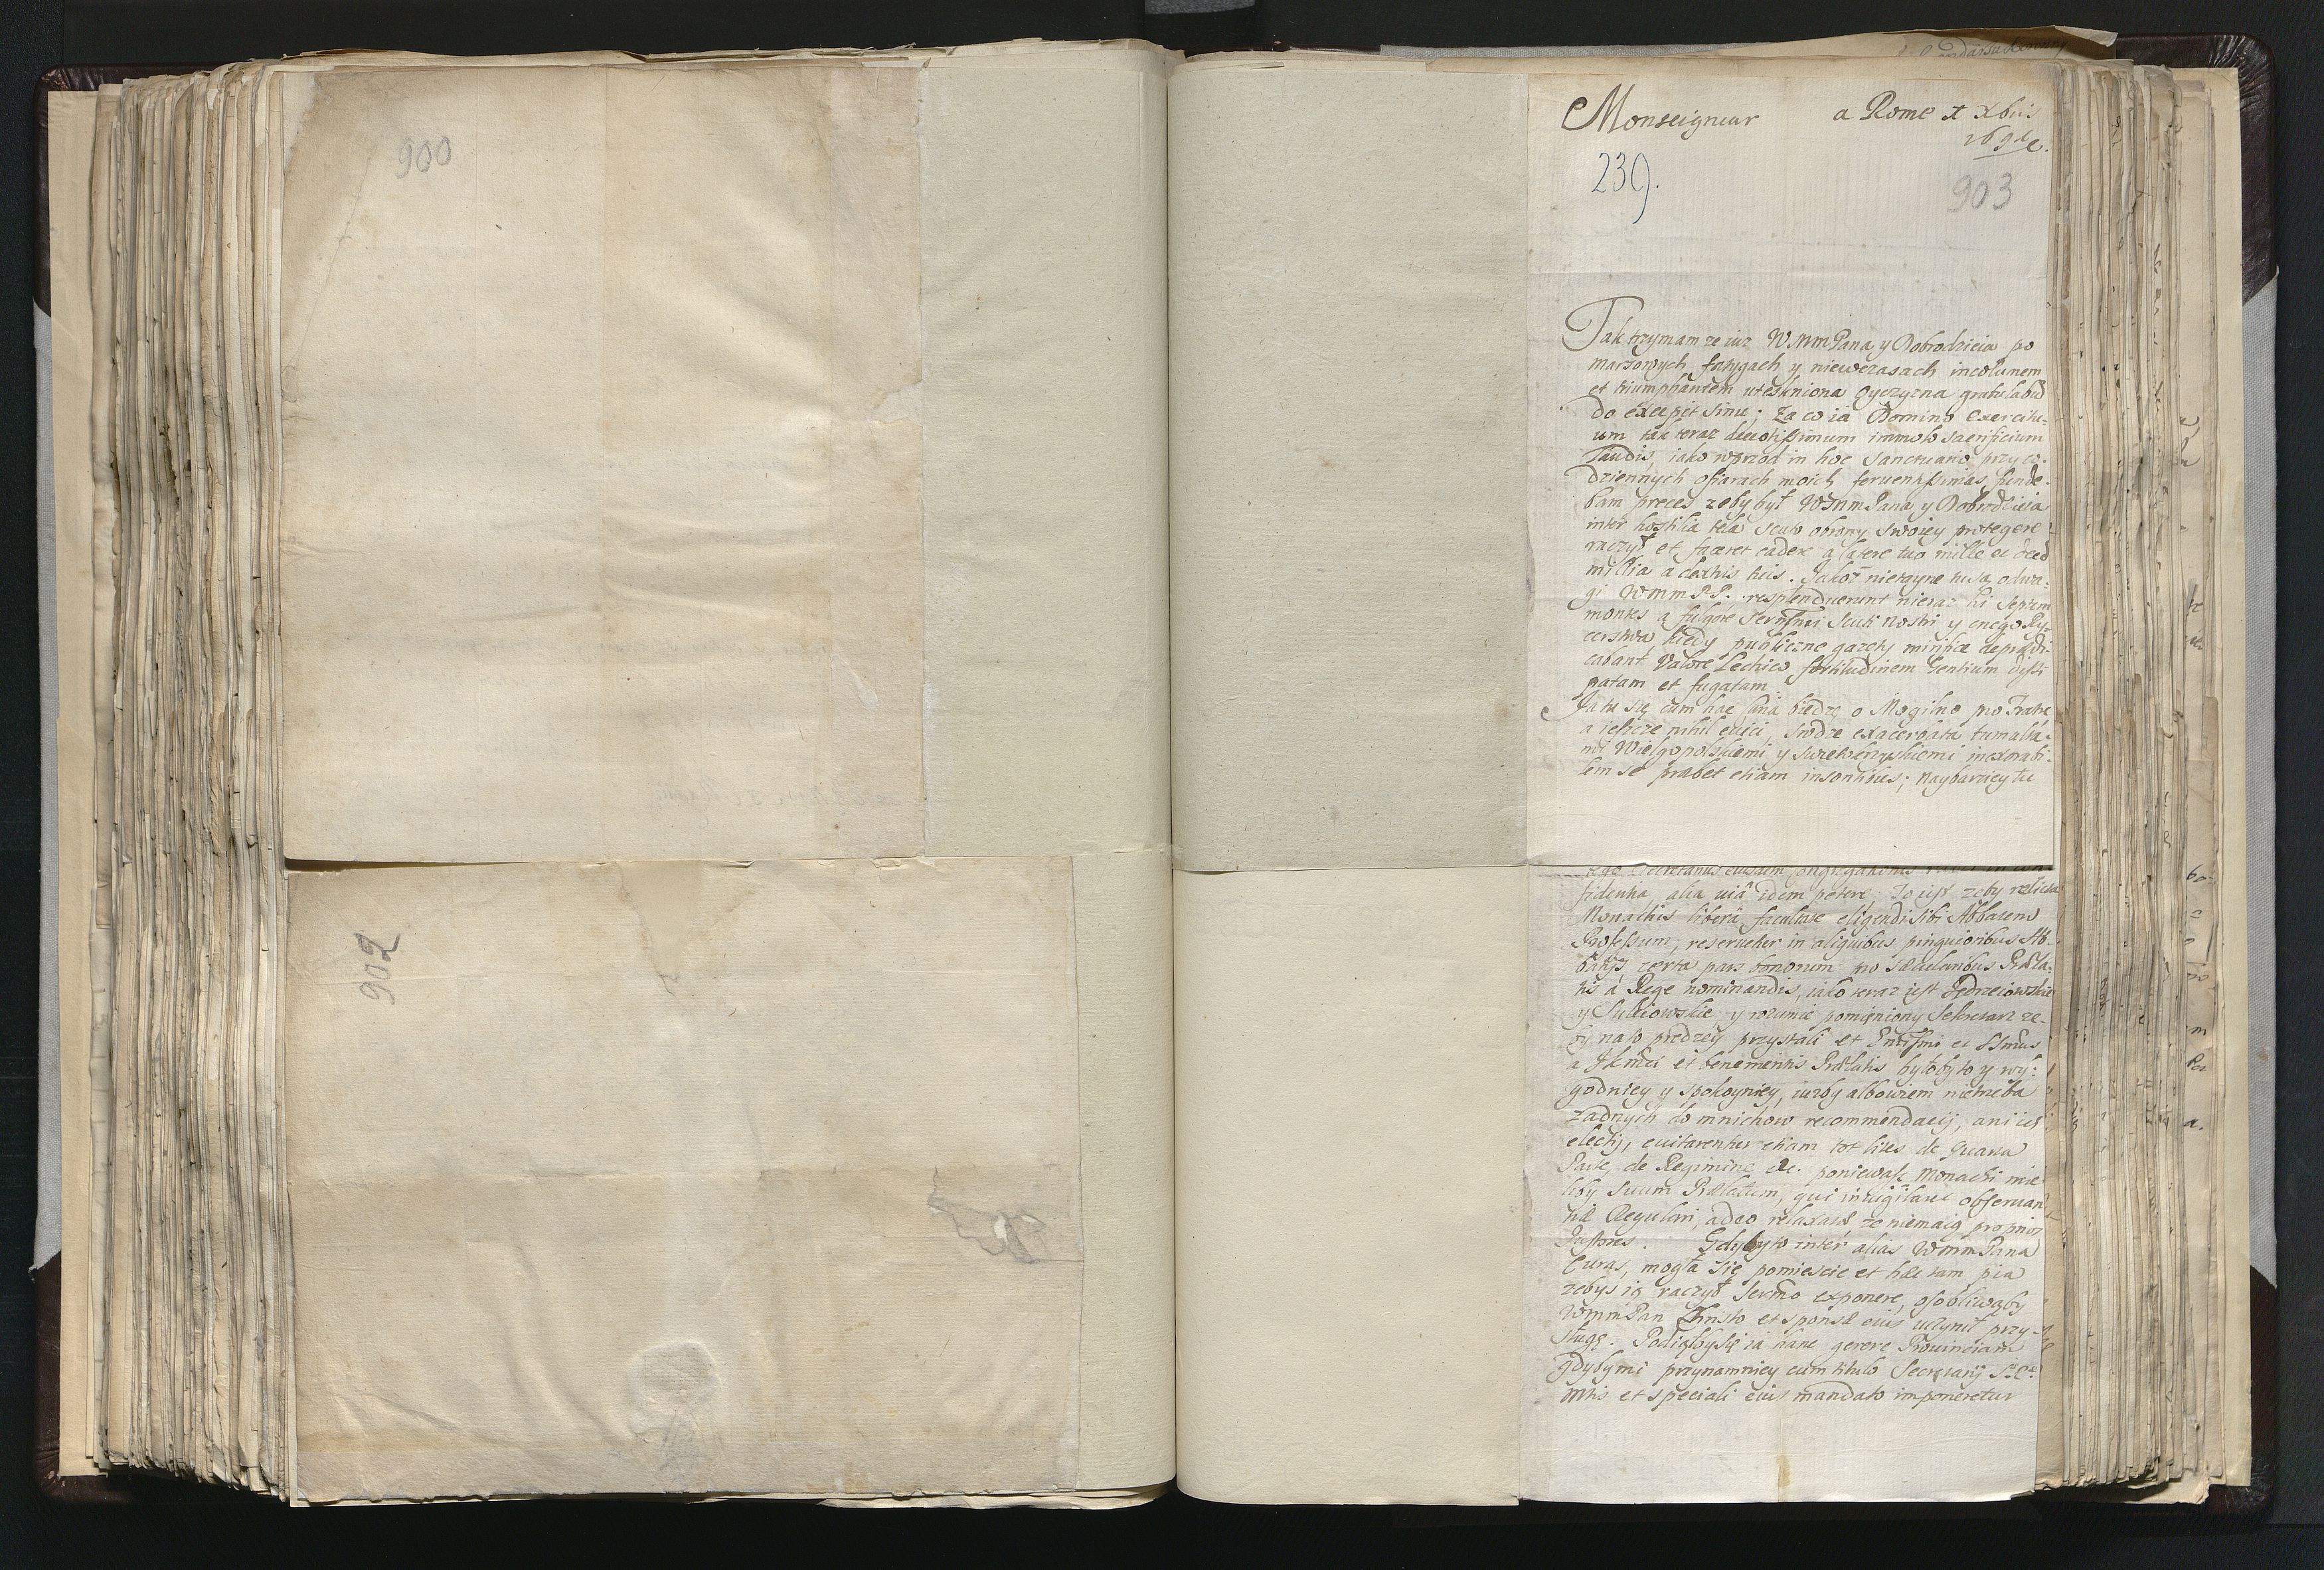 900
902
Monseigneur a Rome
239.
903
Tak trzymam ze iuz WMMPana y Dobrodzieia po
marsowych fatygach y niewczasach incolumem
et triumphantem uteskniona Oyczyzna gratulabun
do excepit sinu; za co ia Domino Exercitu-
um tak teraz devotissimum immolo sacrificium
laudis, iako wprzod in hoc Sanctuario przy co-
dziennych ofiarach moich ferventissimas funde-
bam preces zeby był WMMPana y Dobrodzieia
inter hostilia tela scuto obrony swoiey protegere
raczył et faceret cadere a latere tuo mille et decem
millia a dextris tuis. Jakoż nietayne tu są odwa-
gi WMMPP. resplenduerunt nieraz hi septem
montes a fulgore Sernissimi Scuti nostri y onego Ry-
cerstwa kiedy publiczne gazety mirifice deprædi-
cabant Valore Lechico fortitudinem Gentium dissi
patam et fugatam
Ja tu się cum hac biedzę o Mogiłno pro Fratre
a ieszcze nihil evici, srodze exacerbata tumulta-
mi Wielgopolskiemi y swietokrzyskiemi inexorabi-
lem se præbet etiam insontibus; naybarziey tu
Secretarius eiusdem Congregationis
fidentia, alia viâ idem petere; To iest zeby relicta
Monachis liberâ facultate eligendi sibi Abbatem
Professum, reservetur in aliquibus pinguioribus Ab-
batijs certa pars bonorum pro sæcularibus Præla-
tis à Rege nominandis, iako teraz iest Jędrzeiowskie
y Suleiowskie y rozumie pomieniony Sekretarz ze-
by na to prędzey przystali et Eminissimi et SSmus
a et benemeritis Prælatis byłoby to y wy-
godniey y spokoyniey, iuzby albowiem nietrzeba
zadnych do mnichow recommendacij, ani ich
elekcij, evitarentur etiam tot lites de Quarta
Parte, de Regimine &c. poniewasz Monachi mie
liby suum Prælatum, qui invigilaret observan
tiæ Regulari, adeo relaxatæ ze niemaią proprios
Pastores. Gdyby to inter alias WMMPana
Curas, mogła się pomiescic et hæc tam pia
zebys ią raczył Sermo exponere, osobliwąby
WMMPan Christo et sponsæ eius uczynił przy-
sługę. Podiąłbysię ia hanc gerere Provinciam
gdyby mi przynamniey cum titulo Secretarij
Mtis et speciali eius mandato imponeretur